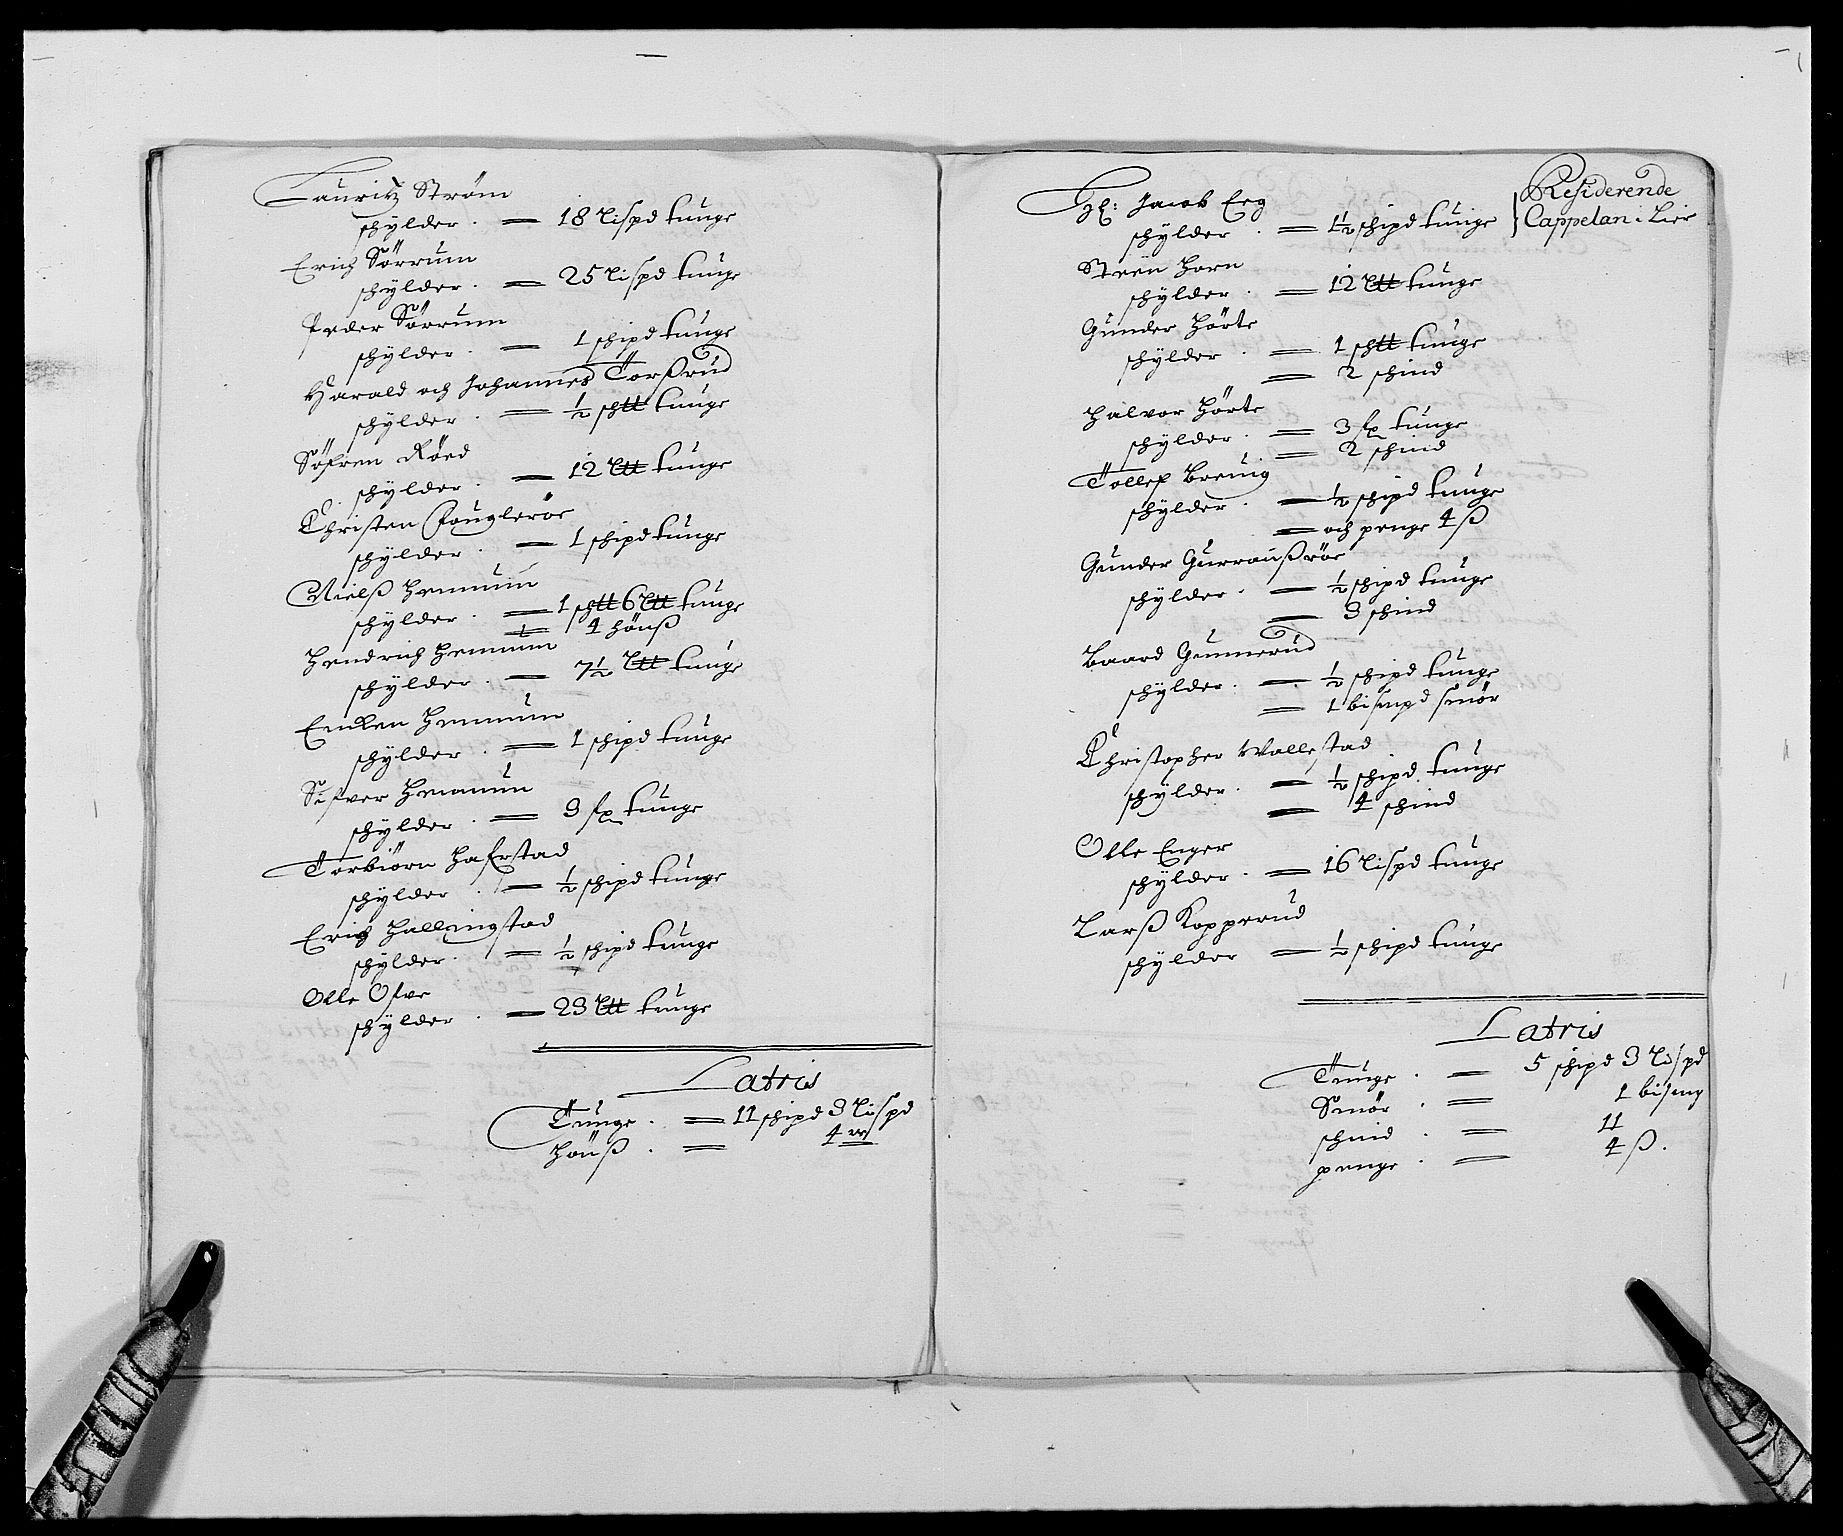 Lauritz Ström
schÿlder. = 18 Lispd tunge
Erich Sörrum
schÿlder. = 25 Lispd tunge
Peder Sörrum
schÿlder. = 1 schipd tunge
Harald och Johannes Torßrud
schÿlder. = ½ schtt tunge
Söfren Röed
schÿlder. = 12 Ltt tunge
Christen Fougleröe
schÿlder. = 1 schipd tunge
Nielß Hennum
schÿlder. = 1 schtt 6 Ltt tunge
= 4 hönß
Hendrich Hennum
schÿlder. = 7½ Ltt tunge
Hennum
schÿlder. = 1 schipd tunge
Sifver Hennum
schÿlder. = 3 fx tunge
Torbiörn Hafrstad
schÿlder. = ½ schipd tunge
Erich Hallingstad
schÿlder. = ½ schipd tunge
Olle Ofve
schÿlder. = 23 Ltt tunge
Latris
Tunge. = 11 schipd 3 Lispd
Hönß. = 4
Hr: Jacob Eeg
schÿlder. = 1½ schipd tunge
Residerende
Cappelan i Lier
Steen Horn
schÿlder. = 12 Ltt tunge
Gunder Hörte
schÿlder. = 1 schtt tunge
= 2 schind
Halvor Hörte
schÿlder. = 3 fx tunge
= 2 schind
Tollef Breuig
schÿlder. = ½ schipd tunge
= och penge 4 ß
Gunder Gurranßröe
schÿlder. = ½ schipd tunge
= 3 schind
Baard Gunnerud
schÿlder. = ½ schipd tunge
= 1 bismpd smör
Christopher Wallestad
schÿlder. = ½ schipd. tunge
= 4 schind
Olle Enger
schÿlder. = 16 Lispd tunge
Larß Kopperud
schÿlder = ½ schipd tunge
Latris
Tunge. = 5 schipd 3 Lispd
Smör. = 1 bismp
schind. = 11
penge. = 4 ß.